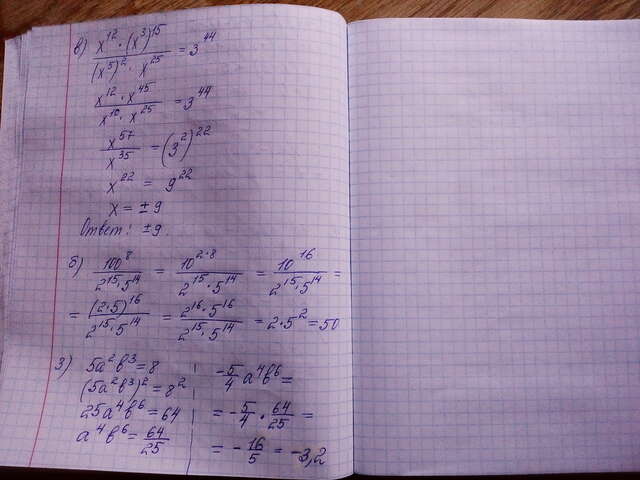 в) (x^12 · (x^3)^15) / ((x^5)^2 · x^25) = 3^44
(x^12 · x^45) / (x^10 · x^25) = 3^44
x^57 / x^35 = (3^2)^22
x^22 = 9^22
x = ±9
Ответ: ±9.
б) 100^8 / (2^15 · 5^14) = 10^(2·8) / (2^15 · 5^14) = 10^16 / (2^15 · 5^14) =
= (2·5)^16 / (2^15 · 5^14) = (2^16 · 5^16) / (2^15 · 5^14) = 2·5^2 = 50
3) 5a^2b^3 = 8
(5a^2b^3)^2 = 8^2
25a^4b^6 = 64
a^4b^6 = 64/25
-5/4 a^4b^6 =
= -5/4 · 64/25 =
= -16/5 = -3,2